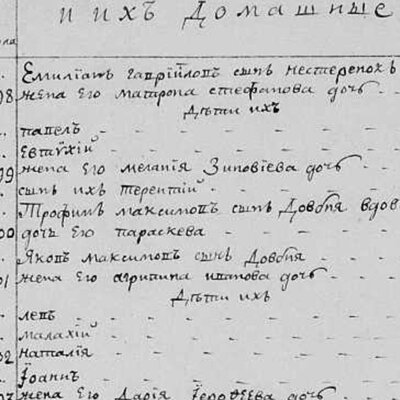 и ихъ Домашные
Емилианъ гаврійловъ сынъ нестеренокъ
98 жена Его матрона стефанова дочь
Дѣти ихъ
павелъ
Евтухій
99 жена Его мелания Зиновіева дочь
сынъ ихъ терентий
Трофимъ максимовъ сынъ Довбня вдов
00 дочь Его параскева
Яковъ максимовъ сынъ Довбня
01 жена Его агрипина иванова дочь
Дѣти ихъ
левъ
малахій
02 наталія
Іоаннъ
жена Его Дарія Іерофѣева дочь